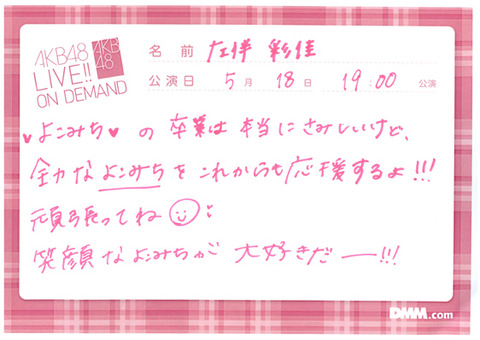 AKB48
LIVE!!
ON DEMAND
AKB
48
名 前 左伴 彩佳
公演日 5月 18日 19:00 公演
♥よこみち♥の卒業は本当にさみしいけど、
全力なよこみちをこれからも応援するよ!!!
頑張ってね
笑顔なよこみちが大好きだー!!!
DMM.com